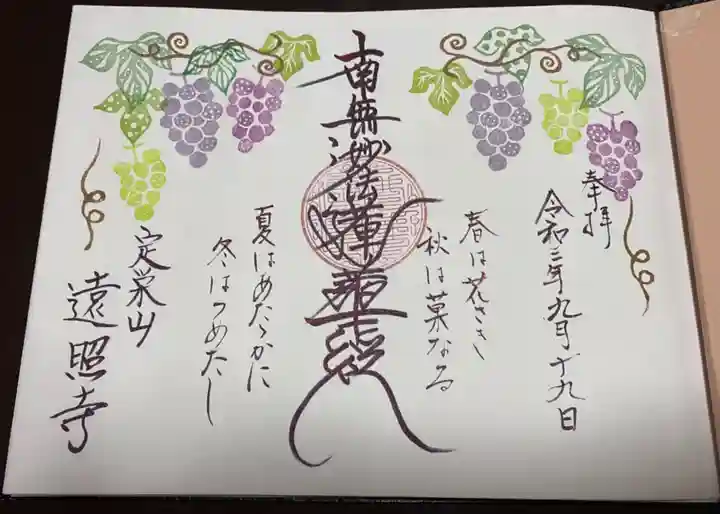 奉拝
令和三年九月十九日
春は花さき
秋は菓なる
南無妙法蓮華経
夏はあたゝかに
冬はつめたし
定栄山
遠照寺